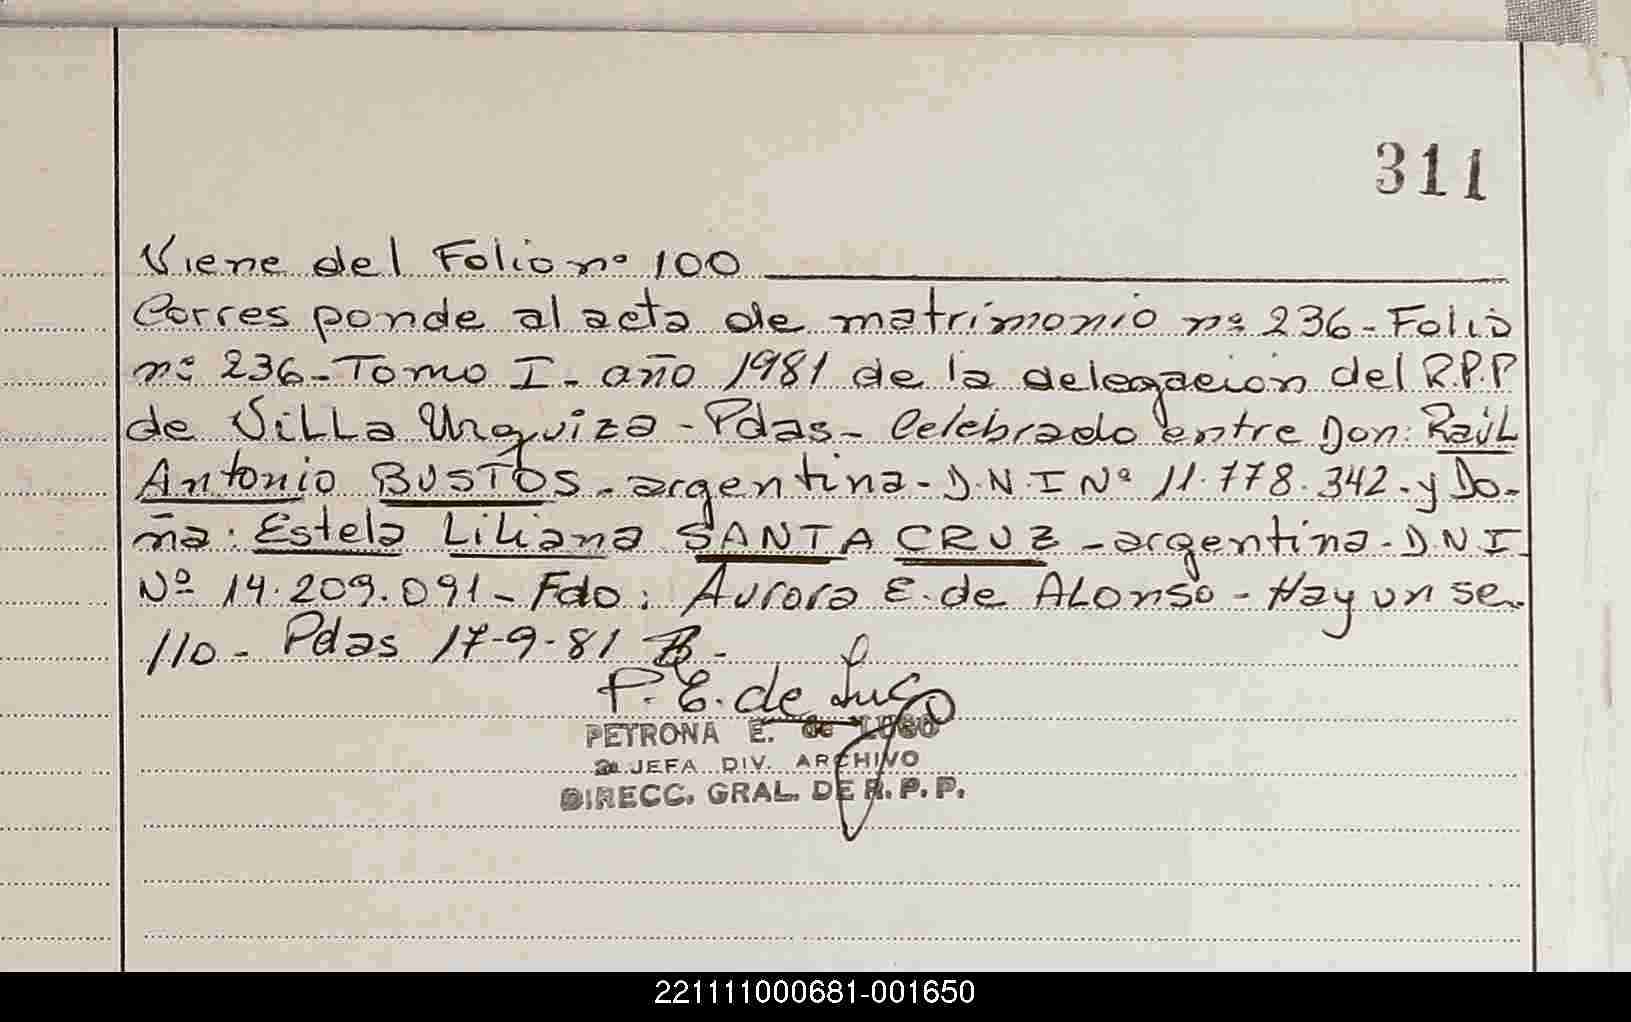 311
Viene del Folio nº 100
Corresponde al acta de matrimonio nº 236- Folio
nº 236- Tomo I- año 1981 de la delegación del R.P.P
de Villa Urquiza - Pdas- Celebrado entre Don: Raúl
Antonio BUSTOS- argentina- D.N.I Nº 11.778.342- y Do-
ña: Estela Liliana SANTA CRUZ - argentina- D.N.I.
Nº 14.209.091- Fdo: Aurora E. de Alonso - Hay un se-
llo- Pdas 17-9-81
P. E. de Lugo
PETRONA E. de LUGO
JEFA DIV. ARCHIVO
DIRECC. GRAL. DE R. P. P.
221111000681-001650